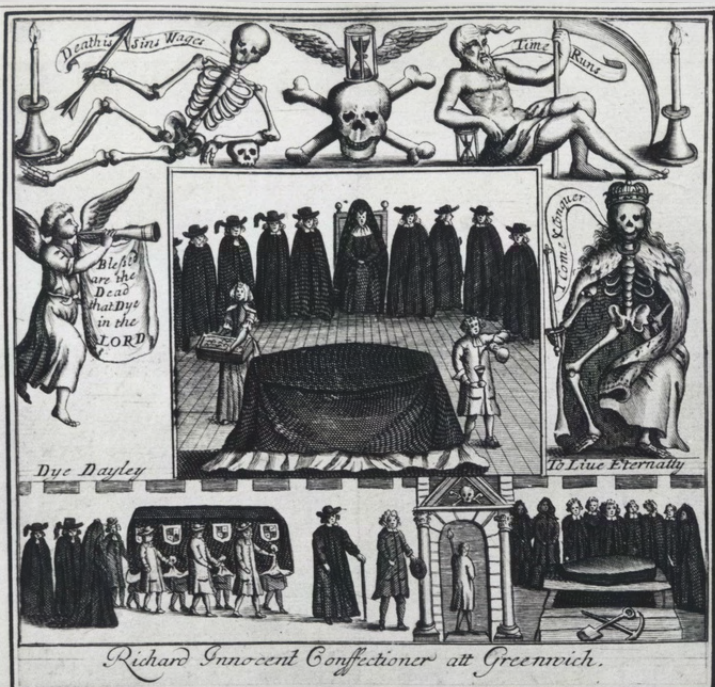 Death is Sins Wages
Time Runs
Blessed
are the
Dead
that Dye
in the
LORD
I Come to Conquer
Dye Dayley
To Liue Eternally
Richard Innocent Conffectioner att Greenwich.